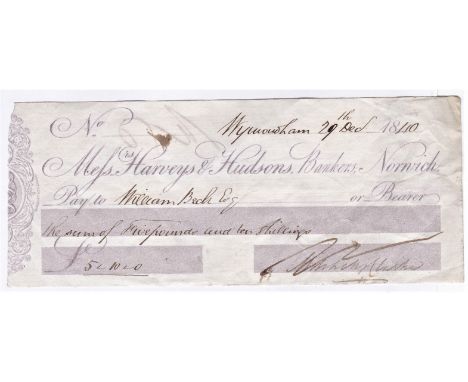 No
Wymondham 29th Decr 1840
Messrs Harveys & Hudsons, Bankers, Norwich.
Pay to William Beck Esq or Bearer
the sum of five pounds and ten Shillings
£ 5 " 10 " 0